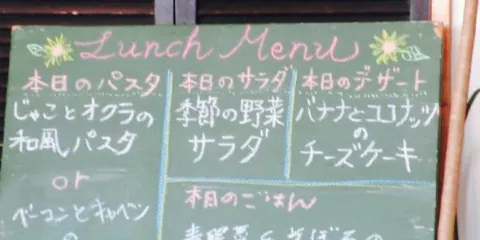 Lunch Menu
本日のパスタ
じゃことオクラの
和風パスタ
or
ベーコンとキャベツ
の
本日のサラダ
季節の野菜
サラダ
本日のデザート
バナナとココナッツ
の
チーズケーキ
本日のごはん